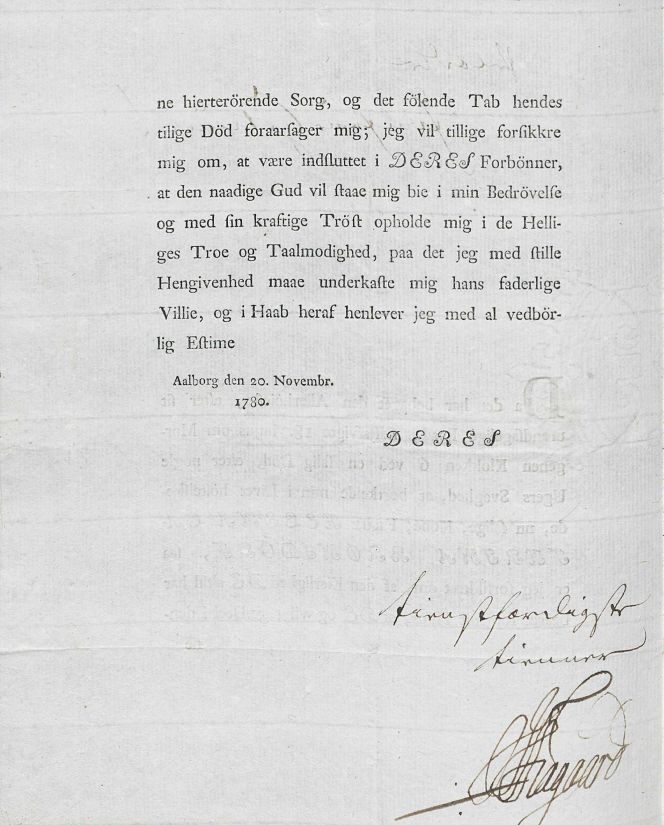 ne hierterörende Sorg, og det fölende Tab hendes
tilige Död foraarſager mig; jeg vil tillige forſikkre
mig om, at være indſluttet i DERES Forbönner,
at den naadige Gud vil ſtaae mig bie i min Bedrövelſe
og med ſin kraftige Tröſt opholde mig i de Helli-
ges Troe og Taalmodighed, paa det jeg med ſtille
Hengivenhed maae underkaſte mig hans faderlige
Villie, og i Haab heraf henlever jeg med al vedbör-
lig Eſtime
Aalborg den 20. Novembr.
1780.
DERES
tienstfærdigste
tienner